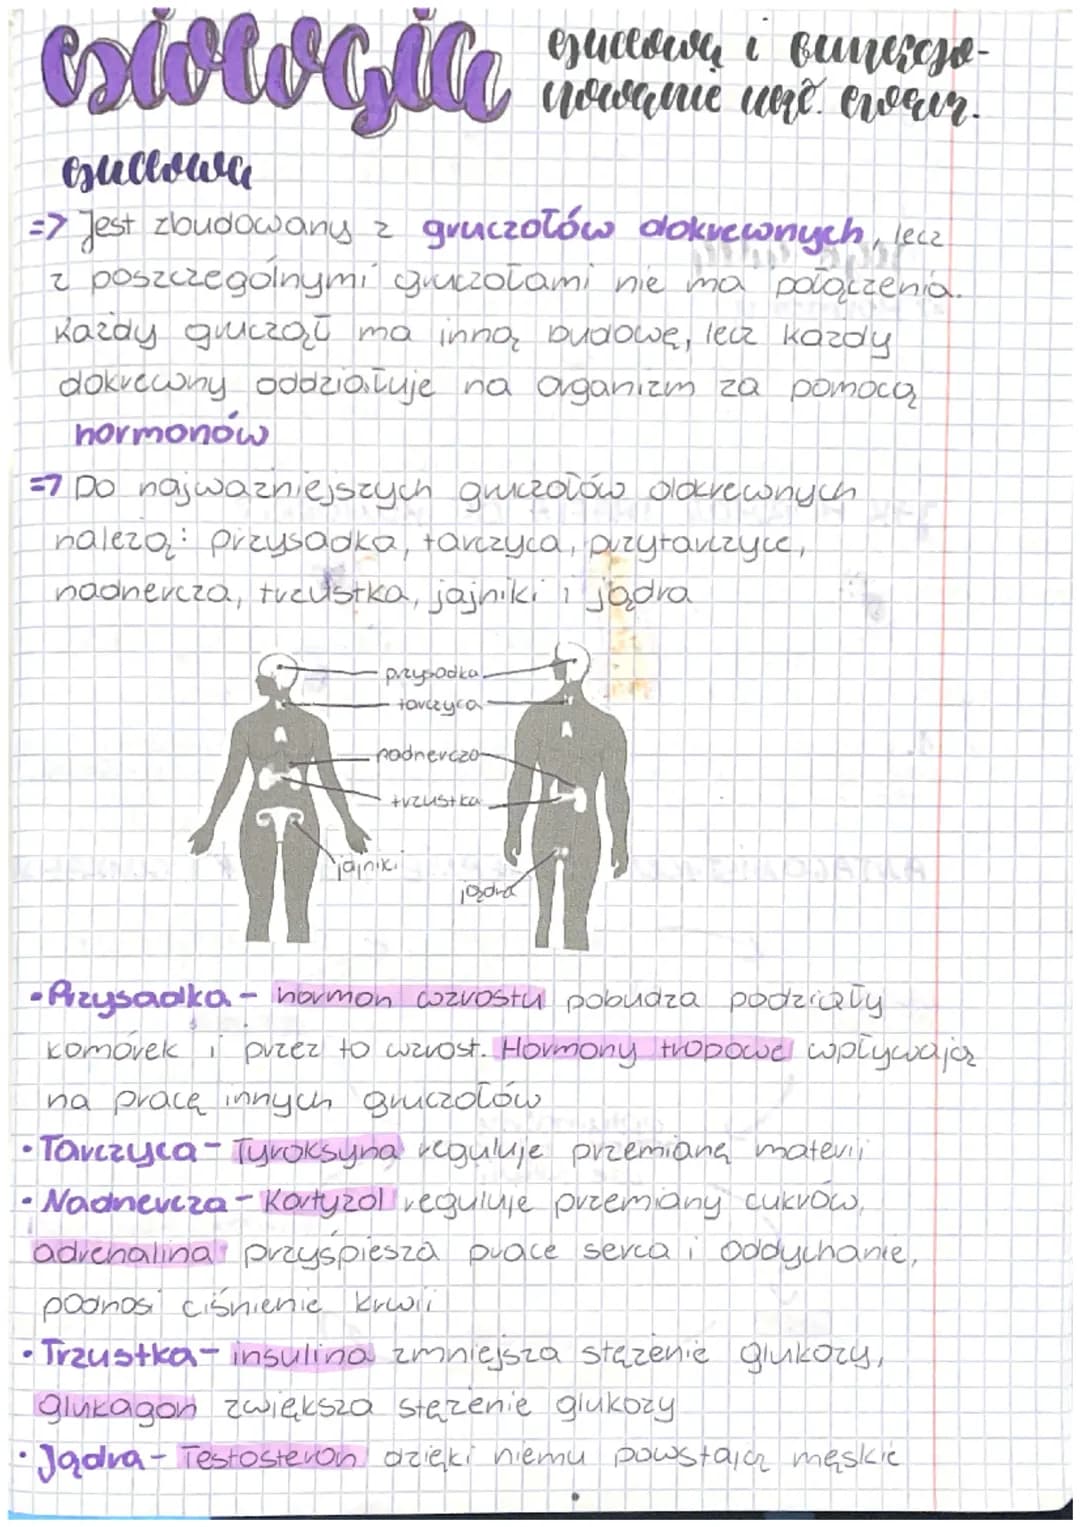 biologia
budowa i funkcjo-
nowanie
budowa
=> Jest zbudowany z gruczołów dokrewnych, lecz
z poszczególnymi gruczołami nie ma połączenia.
Każdy gruczoł ma inną budowę, lecz każdy
dokrewny oddziałuje na organizm za pomocą
hormonów
=> Do najważniejszych gruczołów dokrewnych
należą: przysadka, tarczyca, przytarczyce,
nadnercza, trzustka, jajniki i jądra
przysadka
tarczyca
nadnercza
trzustka
jajniki
jądra
• Przysadka - hormon wzrostu pobudza podziały
komórek i przez to wzrost. Hormony tropowe wpływają
na pracę innych gruczołów
• Tarczyca - Tyroksyna reguluje przemianę materii
• Nadnercza - Kortyzol reguluje przemiany cukrów,
adrenalina przyśpiesza prace serca i oddychanie,
podnosi ciśnienie krwii
• Trzustka - insulina zmniejsza stężenie glukozy,
glukagon zwiększa stężenie glukozy
• Jądra - Testosteron dzięki niemu powstają męskie